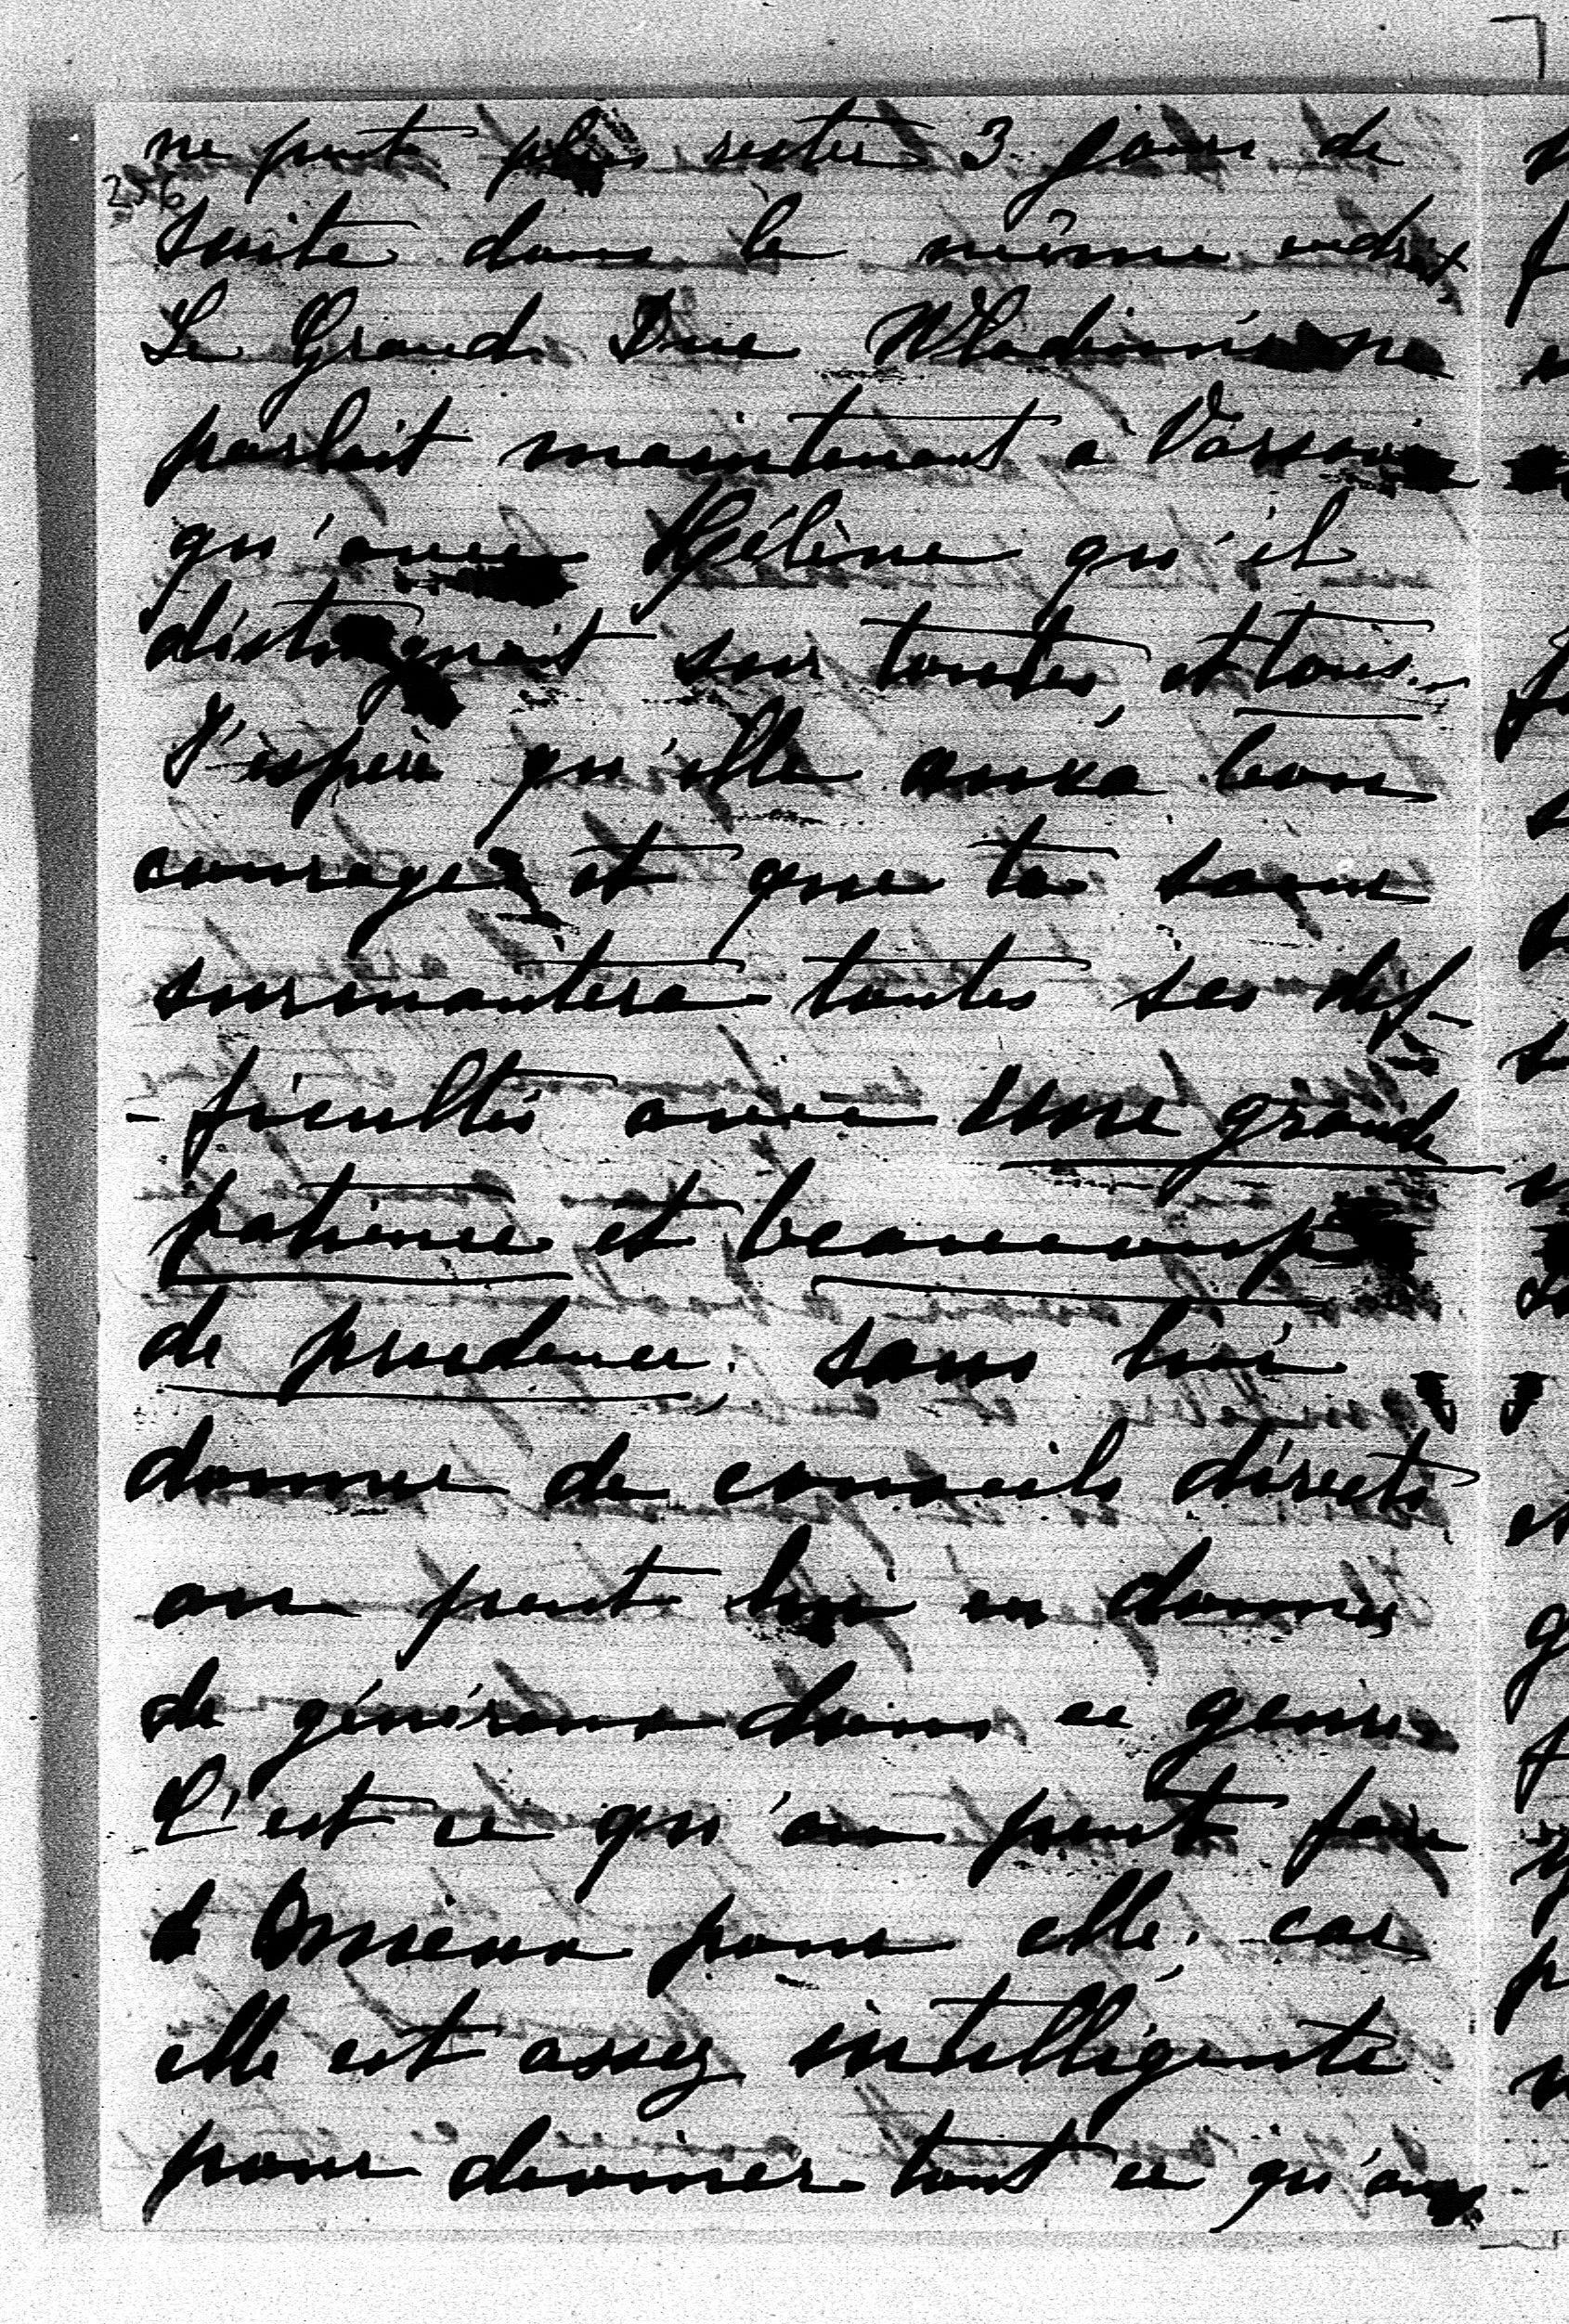 ne peut plus rester 3 jours de
256
suite dans le même endroit
Le Grand Duc Wladimir ne
parlait maintenant a Varsovie
qu'avec Hélène qu'il
distinguait sur toutes et tous.
J'espère qu'elle aura bon
courage et que ta soeur
surmontera toutes ses dif-
-ficultés avec une grande
patience et beaucoup
de prudence, sans lui
donner de conseils directs
on peut lui en donner
de généraux dans ce genre
C'est ce qu'on peut faire
de mieux pour elle, car
elle est assez intelligente
pour deviner tout ce qu'on